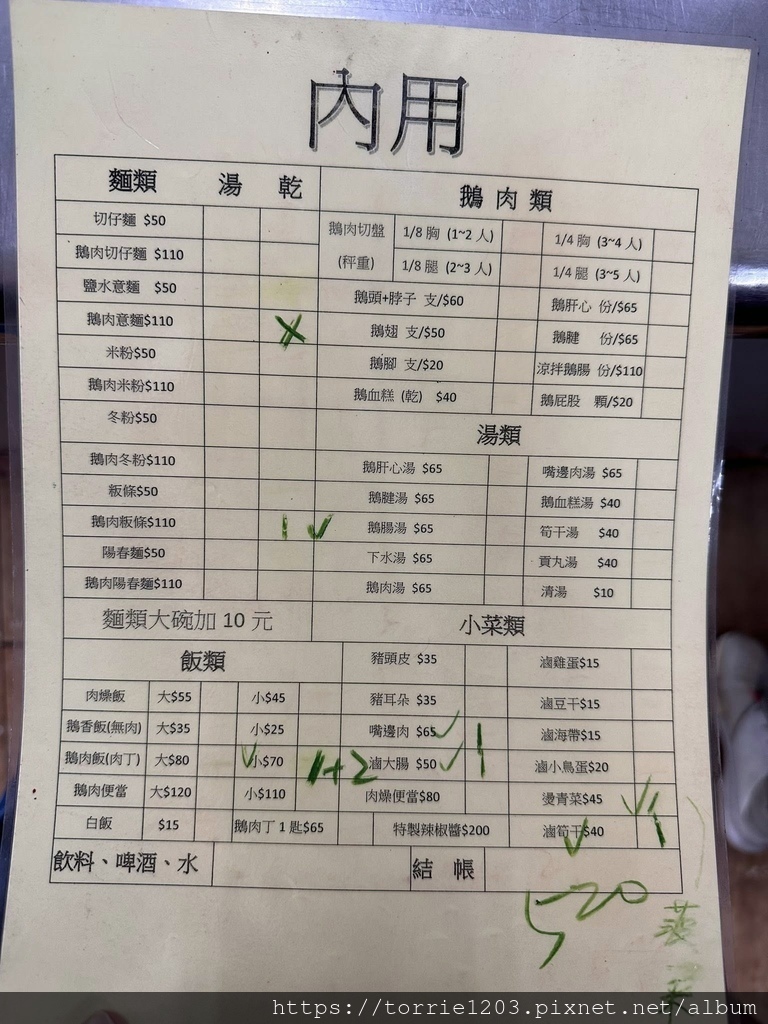 內用
麵類 湯 乾
切仔麵 $50
鵝肉切仔麵 $110
鹽水意麵 $50
鵝肉意麵$110
米粉$50
鵝肉米粉$110
冬粉$50
鵝肉冬粉$110
粄條$50
鵝肉粄條$110 1 ✓
陽春麵$50
鵝肉陽春麵$110
麵類大碗加 10 元
鵝肉類
鵝肉切盤 (秤重) 1/8 胸 (1~2 人) 1/4 胸 (3~4 人)
1/8 腿 (2~3 人) 1/4 腿 (3~5 人)
鵝頭+脖子 支/$60 鵝肝心 份/$65
鵝翅 支/$50 鵝腱 份/$65
鵝腳 支/$20 涼拌鵝腸 份/$110
鵝血糕 (乾) $40 鵝屁股 顆/$20
湯類
鵝肝心湯 $65 嘴邊肉湯 $65
鵝腱湯 $65 鵝血糕湯 $40
鵝腸湯 $65 筍干湯 $40
下水湯 $65 貢丸湯 $40
鵝肉湯 $65 清湯 $10
飯類
肉燥飯 大$55 小$45
鵝香飯(無肉) 大$35 小$25
鵝肉飯(肉丁) 大$80 ✓ 小$70 1+2
鵝肉便當 大$120 小$110
白飯 $15 鵝肉丁 1 匙$65
小菜類
豬頭皮 $35 滷雞蛋$15
豬耳朵 $35 滷豆干$15
嘴邊肉 $65 ✓ 1 滷海帶$15
滷大腸 $50 ✓ 滷小鳥蛋$20
肉燥便當$80 燙青菜$45 ✓ 1
特製辣椒醬$200 滷筍干$40 ✓
飲料、啤酒、水 結帳
520
菠
菜
https://torrie1203.pixnet.net/album